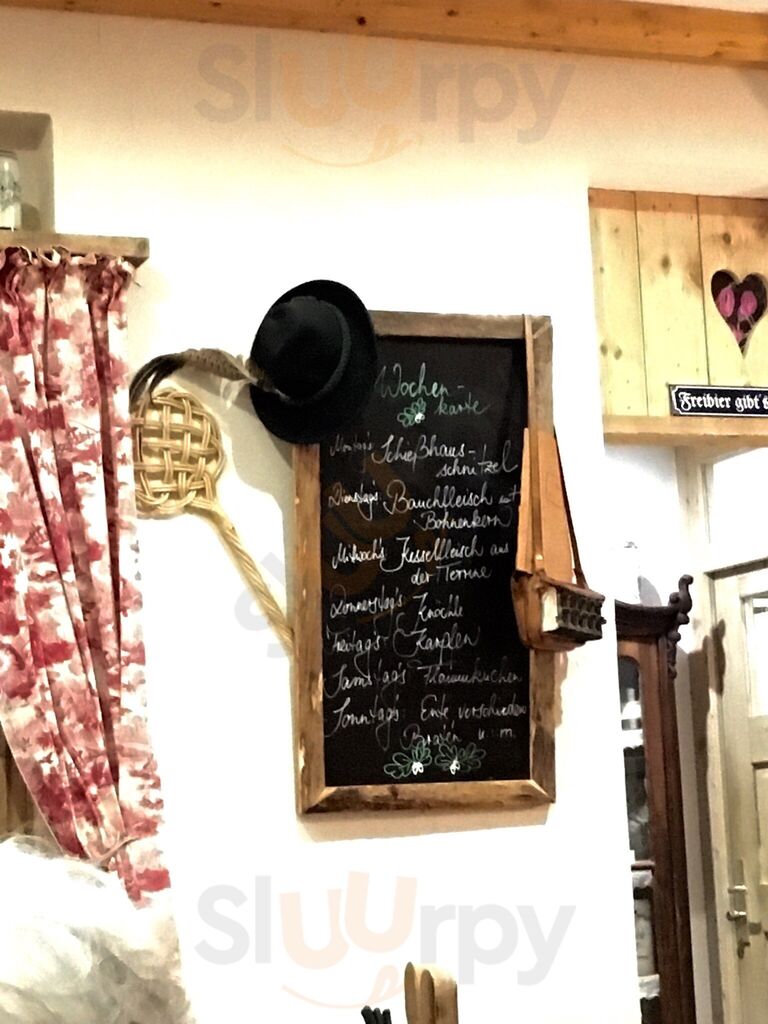 Sluurpy
Wochen-
karte
Freibier gibt's
Montag's: Schießhaus-
schnitzel
Dienstag's: Bauchfleisch mit
Bohnenkern
Mittwoch's Kesselfleisch aus
der Terrine
Donnerstag's: Knöchle
Freitag's: Karpfen
Samstag's Flammkuchen
Sonntag's: Ente, verschieden
Braten u. m.
Sluurpy